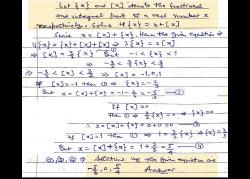 Let {x} and [x] denote the fractional
and integral part of a real number x
respectively. Solve 4{x} = x + [x]
Since x = [x] + {x}, then the given equation ⇒
4{x} = {x} + [x] + [x] ⇒ 3{x} = 2[x]
⇒ [x] = 3/2 {x} But -1 < {x} < 1
⇒ -3/2 < [x] < 3/2 ⇒ [x] = -1, 0, 1
If [x] = -1 then ① ⇒ {x} = -2/3
But x = [x] + {x} = -1 - 2/3 = -5/3
If [x] = 0
then ① ⇒ 0 = 3/2 {x} ⇒ {x} = 0
∴ x = [x] + {x} = 0 + 0 = 0
If [x] = 1 then ① ⇒ 1 = 3/2 {x} ⇒ {x} = 2/3
But x = [x] + {x} = 1 + 2/3 = 5/3
solutions the given equation are
-5/3, 0, 5/3 Answer